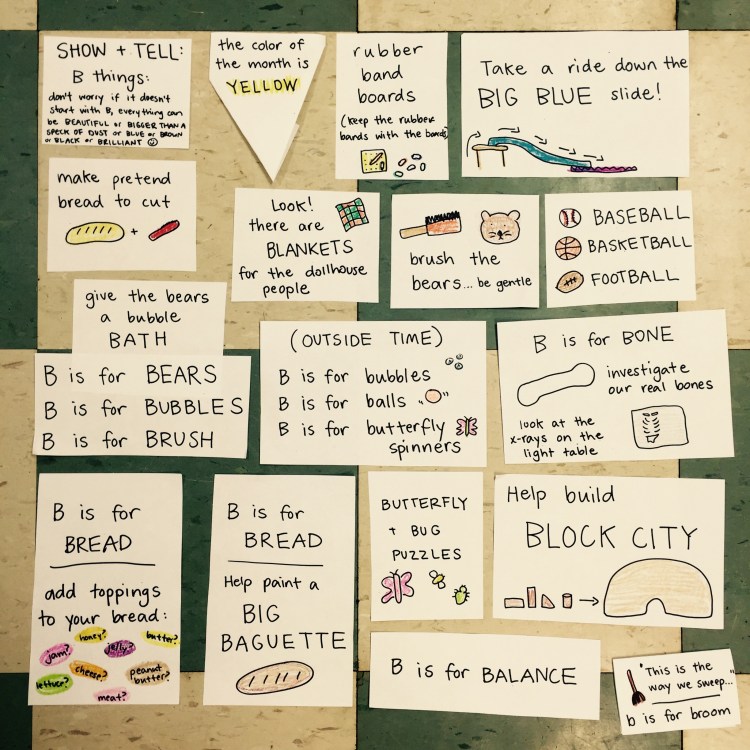 SHOW + TELL:
B things:
don't worry if it doesn't
start with B, everything can
be BEAUTIFUL or BIGGER THAN A
SPECK OF DUST or BLUE or BROWN
or BLACK or BRILLIANT
the color of
the month is
YELLOW
rubber
band
boards
(keep the rubber
bands with the boards)
Take a ride down the
BIG BLUE slide!
make pretend
bread to cut
+
Look!
there are
BLANKETS
for the dollhouse
people
brush the
bears... be gentle
BASEBALL
BASKETBALL
FOOTBALL
give the bears
a bubble
BATH
B is for BEARS
B is for BUBBLES
B is for BRUSH
(OUTSIDE TIME)
B is for bubbles
B is for balls
B is for butterfly
spinners
B is for BONE
investigate
our real bones
look at the
x-rays on the
light table
B is for
BREAD
add toppings
to your bread:
jam?
honey?
jelly?
butter?
lettuce?
cheese?
peanut
butter?
meat?
B is for
BREAD
Help paint a
BIG
BAGUETTE
BUTTERFLY
+ BUG
PUZZLES
Help build
BLOCK CITY
B is for BALANCE
"This is the
way we sweep..."
b is for broom